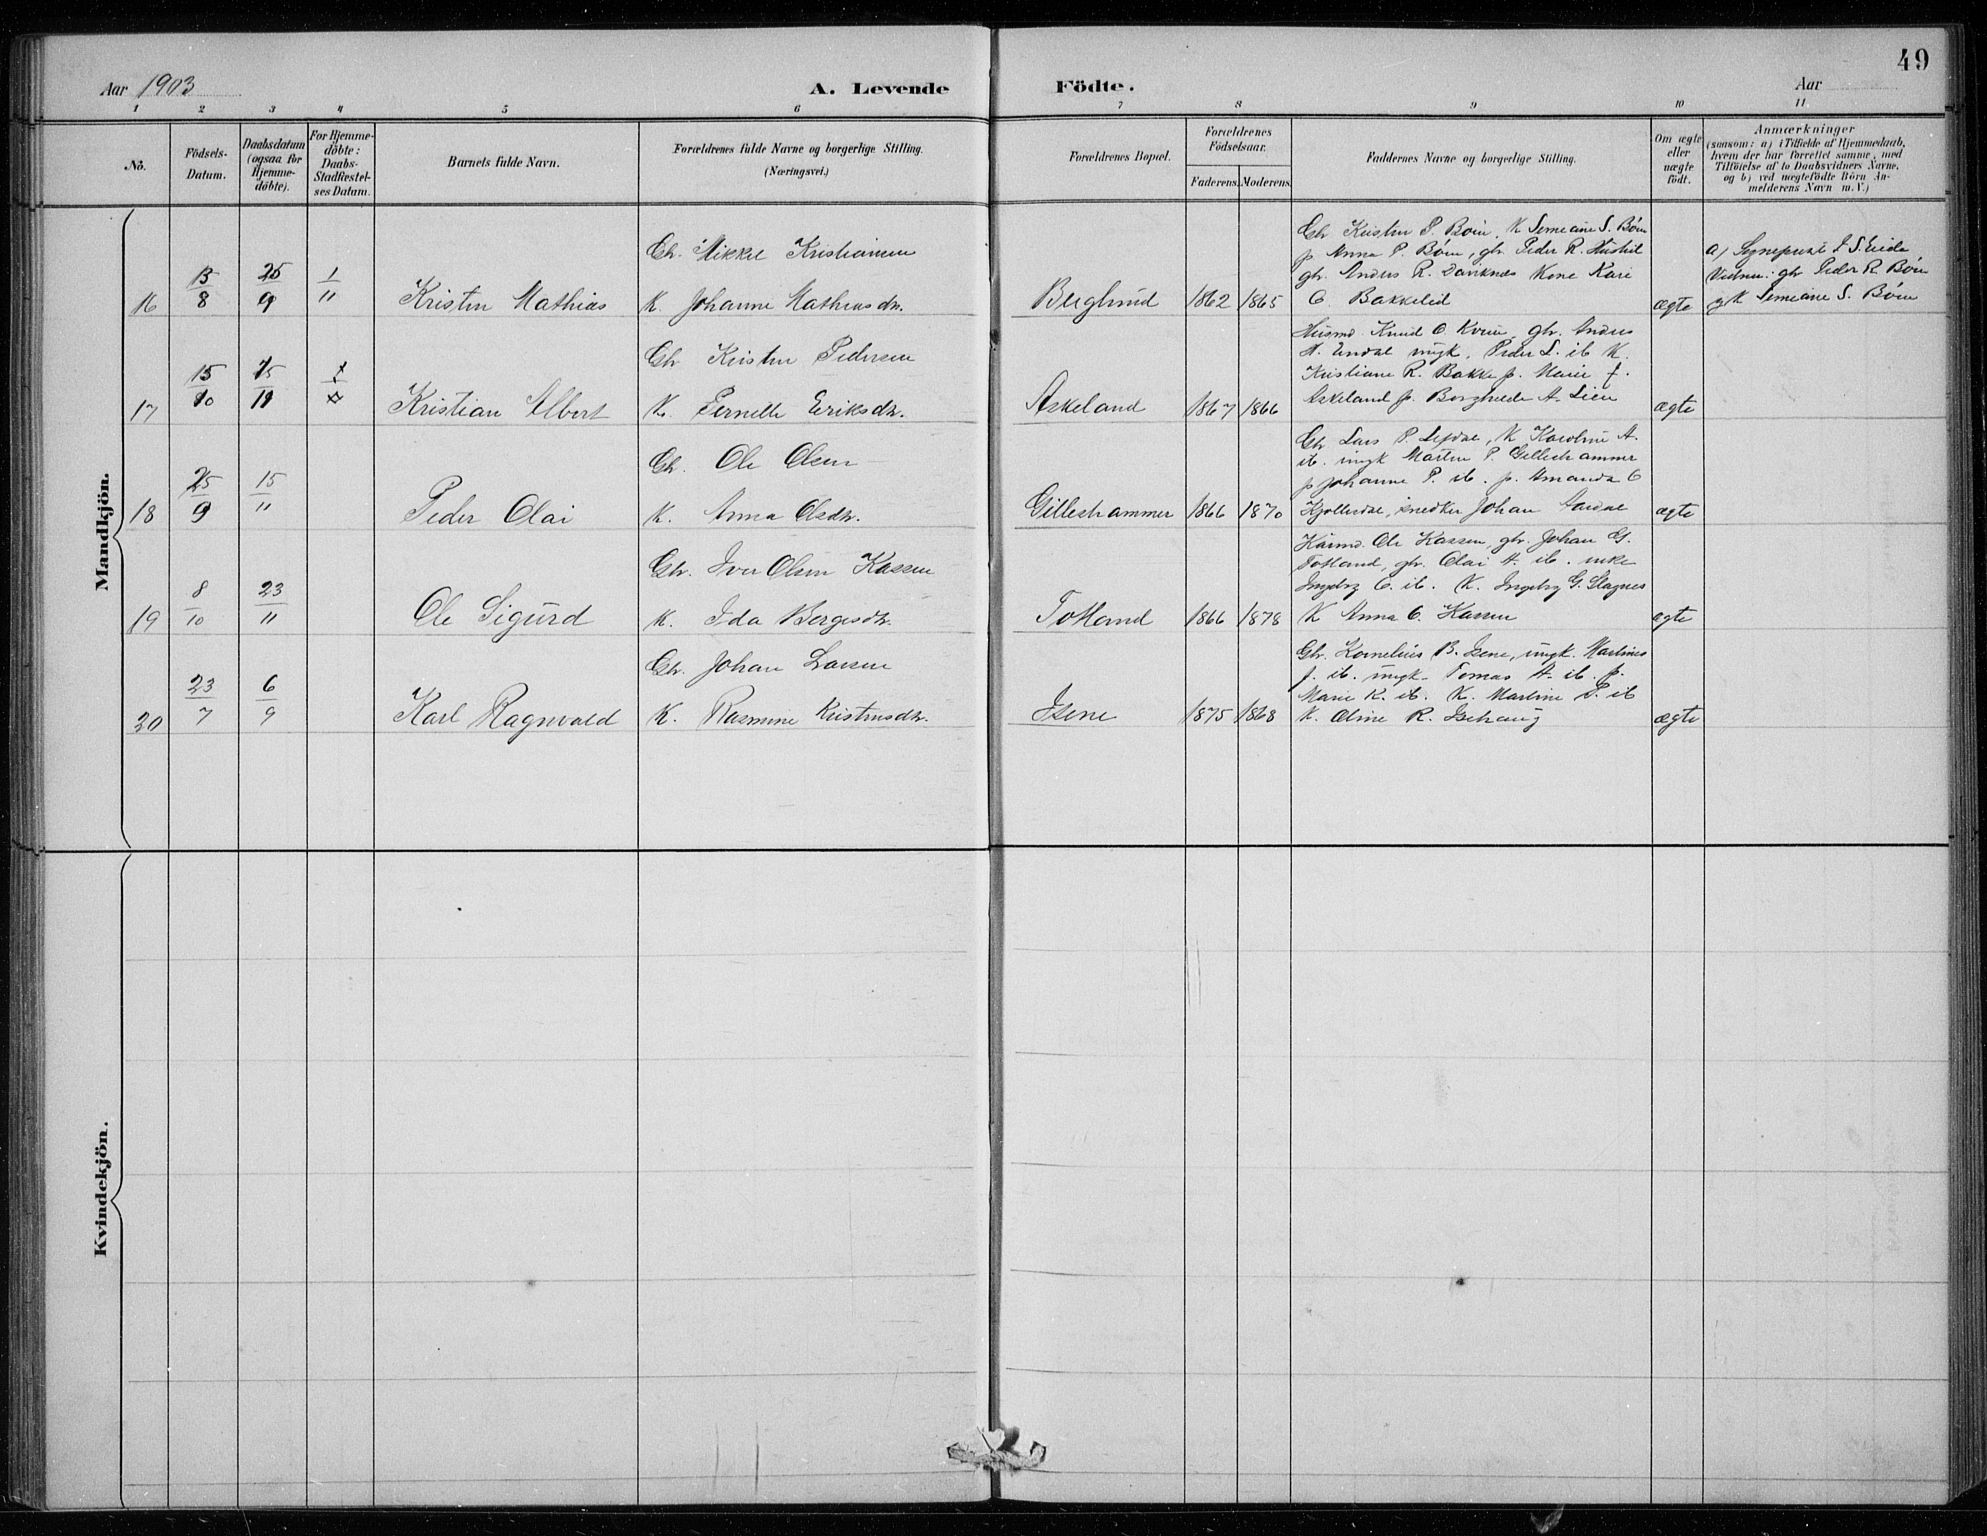 49
Aar 1903
A. Levende Födte.
Aar
1 2 3 4 5 6 7 8 9 10 11
No.
Födsels-
Datum.
Daabsdatum
(ogsaa for
Hjemme-
döbte).
For Hjemme-
döbte:
Daabs-
Stadfæstel-
ses Datum.
Barnets fulde Navn.
Forældrenes fulde Navne og borgerlige Stilling.
(Næringsvei.)
Forældrenes Bopæl.
Forældrenes
Födselsaar.
Faderens. Moderens.
Faddernes Navne og borgerlige Stilling.
Om ægte
eller
uægte
födt.
Anmærkninger
(saasom: a) i Tilfælde af Hjemmedaab,
hvem der har forrettet samme, med
Tilföielse af to Daabsvidners Navne,
og b) ved uægtefödte Börn An-
melderens Navn m. V.)
Mandkjön.
16
13/8
25/9
1/11
Kristen Mathias
Gbr. Mikkel Kristiansen
K. Johanne Mathiasdtr.
Berglund
1862 1865
Gbr Kristen P. Böen, K Semeane S. Böen
p. Anna P. Böen, gbr Peder R.
gbr. Anders R. Danknes Kone Kari
O. Bakkelid
ægte
a) S. Eide
Vidner: gbr Peder R Böen
og K Semeane S. Böen
17
15/10
15/11
Kristian Albert
Gbr Kristen Pedersen
K. Pernelle Eriksdtr.
Askeland
1867 1866
Husmd. Knud O. Kvien, gbr. Anders
H. Endal ungk. Peder L. ib K.
Kristiane R. Bakke p. Marie J.
Askeland p. Borghilde A. Lien
ægte
18
25/9
15/11
Peder Olai
Gbr. Ole Olsen
K. Anna Olsdtr.
Gilleshammer
1866 1870
Gbr Lars P. K Karoline A.
ib. ungk Martin P. Gilleshammer
p Johanne P. ib. p. Amanda O
Kjollesdal, snedker Johan Aardal
ægte
19
8/10
23/11
Ole Sigurd
Gbr. Iver Olsen Kassen
K. Ida Bergesdtr.
Totland
1866 1878
Kaarmd. Ole Kassen, gbr. Johan G.
Totland, gbr. Olai A. ib. enke
Ingebrg O. ib. K. Ingebrg G. Slagnes
K Anna O. Kassen
ægte
20
23/7
6/9
Karl Ragnvald
Gbr. Johan Larsen
K. Rasmine Kristensdtr.
Isene
1875 1868
Gbr. Kornelius B. Isene, ungk. Martines
J. ib. ungk Tomas A. ib. p.
Marie K. ib. K. Martine P. ib
K. Oline R. Isehaug
ægte
Kvindekjön.